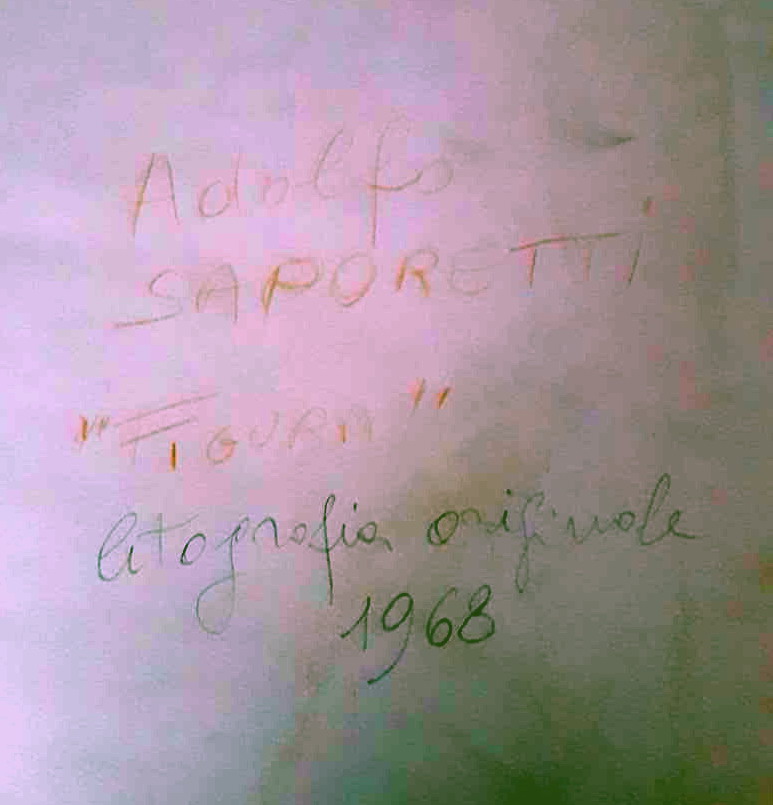 Adolfo
SAPORETTI
"FIGURA"
litografia originale
1968